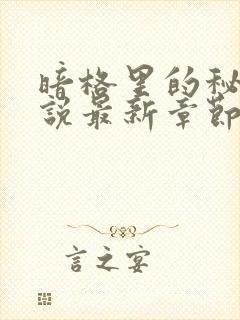 暗格里的秘
說最新章節
言之宴